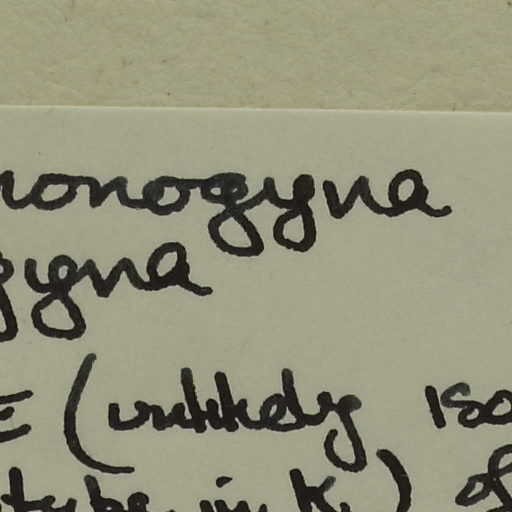 monogyna
gyna
E (unlikely iso
type in K.) of